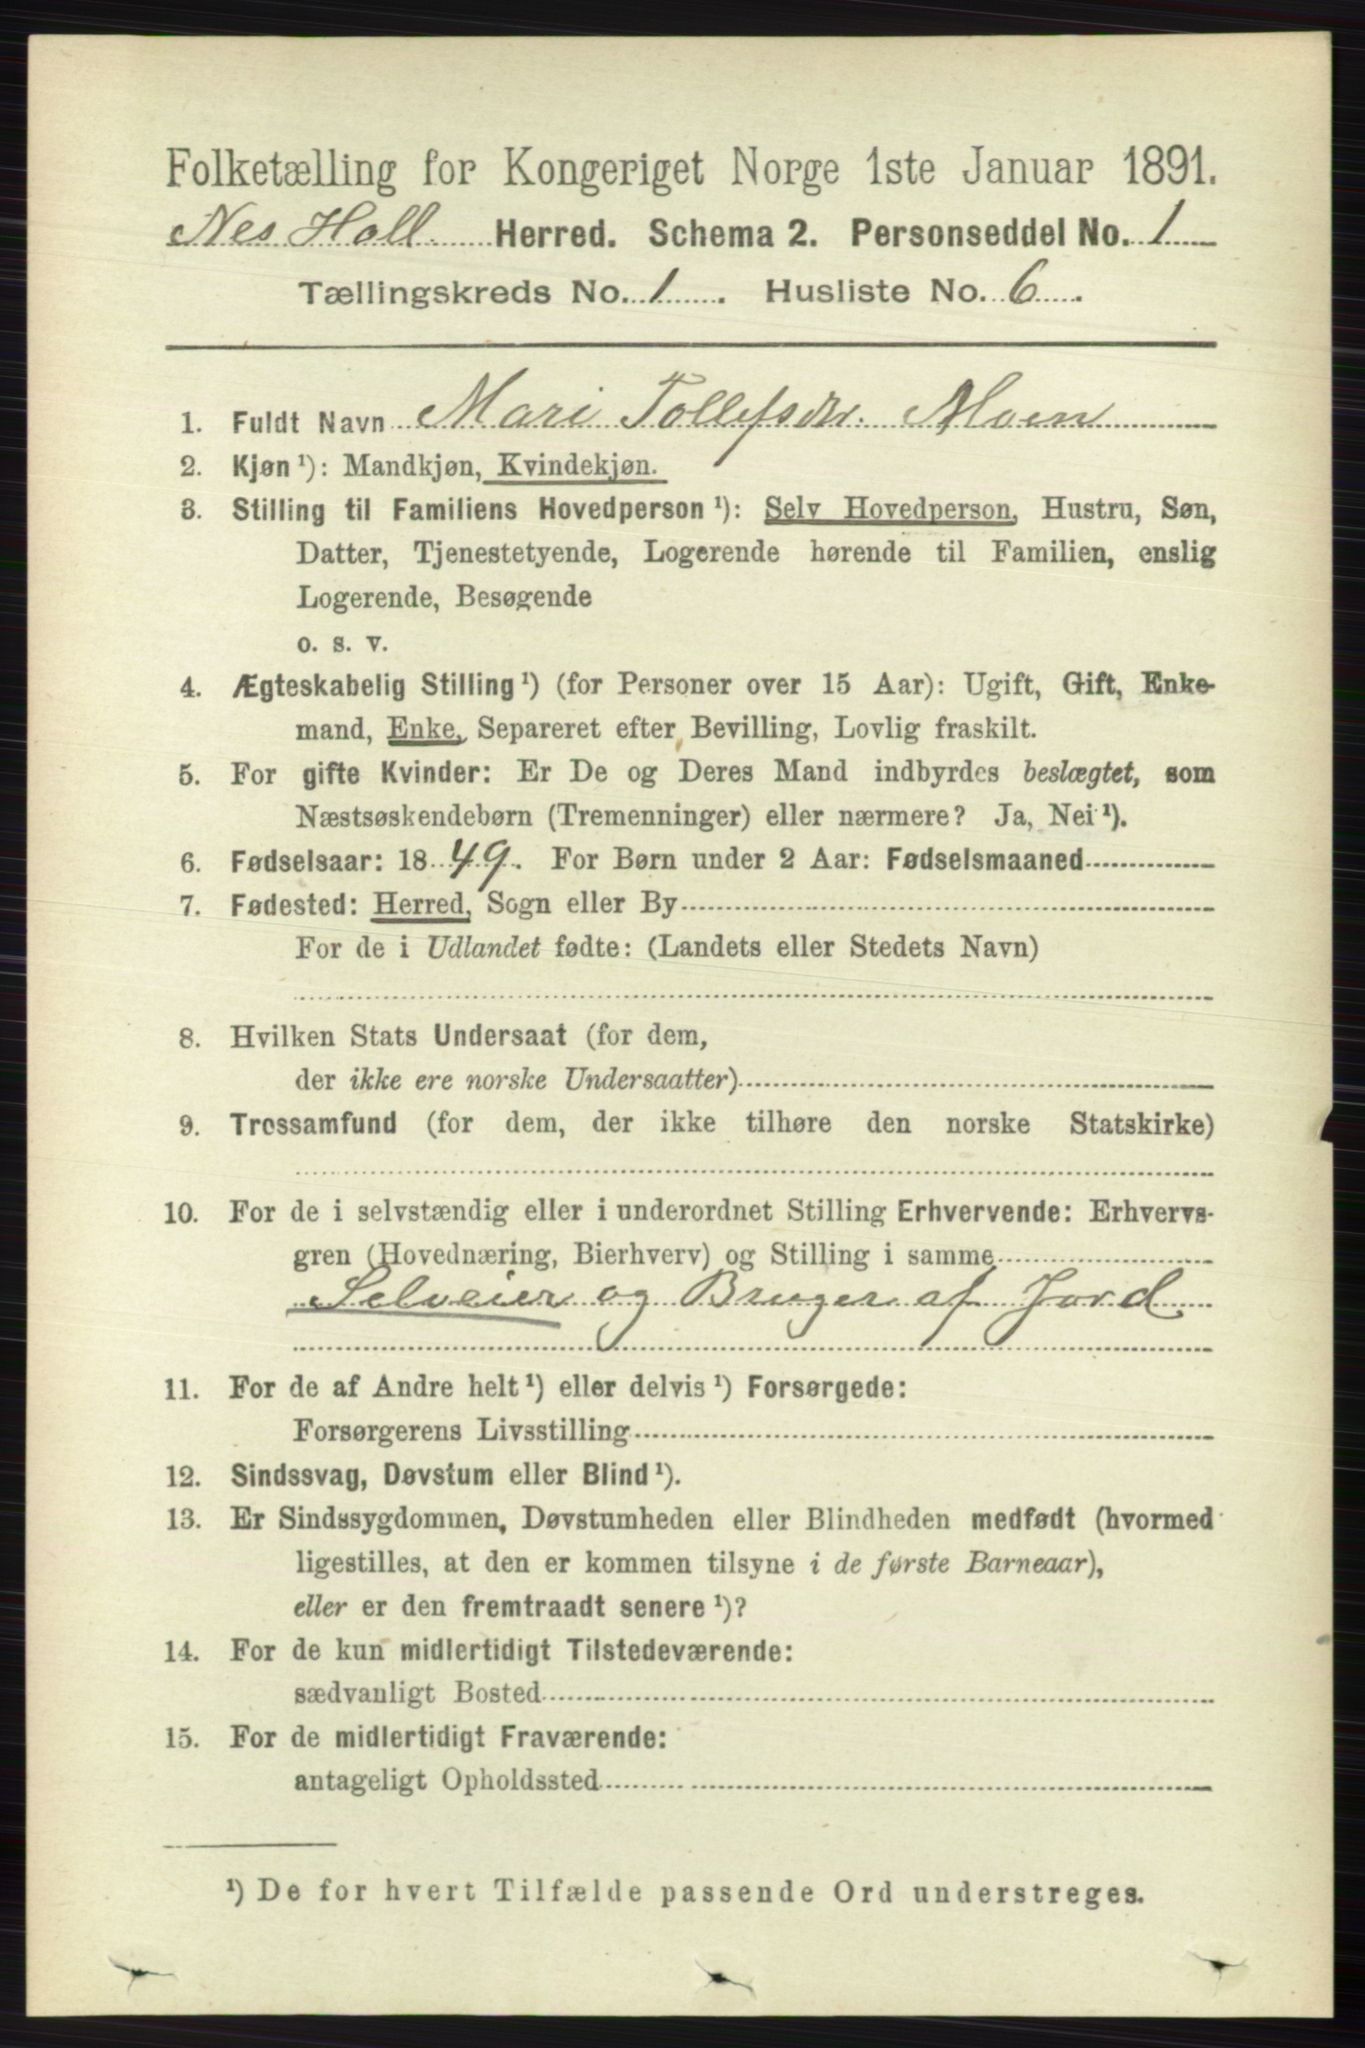 Folketælling for Kongeriget Norge 1ste Januar 1891.
Nes Hall. Herred. Schema 2. Personseddel No. 1
Tællingskreds No. 1. Husliste No. 6.
1. Fuldt Navn Mari Tollefsdtr. Moen
2. Kjøn ¹): Mandkjøn, Kvindekjøn.
3. Stilling til Familiens Hovedperson ¹): Selv Hovedperson, Hustru, Søn,
Datter, Tjenestetyende, Logerende hørende til Familien, enslig
Logerende, Besøgende
o. s. v.
4. Ægteskabelig Stilling ¹) (for Personer over 15 Aar): Ugift, Gift, Enke-
mand, Enke, Separeret efter Bevilling, Lovlig fraskilt.
5. For gifte Kvinder: Er De og Deres Mand indbyrdes beslægtet, som
Næstsøskendebørn (Tremenninger) eller nærmere? Ja, Nei ¹).
6. Fødselsaar: 1849. For Børn under 2 Aar: Fødselsmaaned
7. Fødested: Herred, Sogn eller By
For de i Udlandet fødte: (Landets eller Stedets Navn)
8. Hvilken Stats Undersaat (for dem,
der ikke ere norske Undersaatter)
9. Trossamfund (for dem, der ikke tilhøre den norske Statskirke)
10. For de i selvstændig eller i underordnet Stilling Erhvervende: Erhvervs-
gren (Hovednæring, Bierhverv) og Stilling i samme
Selveier og Bruger af Jord
11. For de af Andre helt ¹) eller delvis ¹) Forsørgede:
Forsørgerens Livsstilling
12. Sindssvag, Døvstum eller Blind ¹).
13. Er Sindssygdommen, Døvstumheden eller Blindheden medfødt (hvormed
ligestilles, at den er kommen tilsyne i de første Barneaar),
eller er den fremtraadt senere ¹)?
14. For de kun midlertidigt Tilstedeværende:
sædvanligt Bosted
15. For de midlertidigt Fraværende:
antageligt Opholdssted
¹) De for hvert Tilfælde passende Ord understreges.